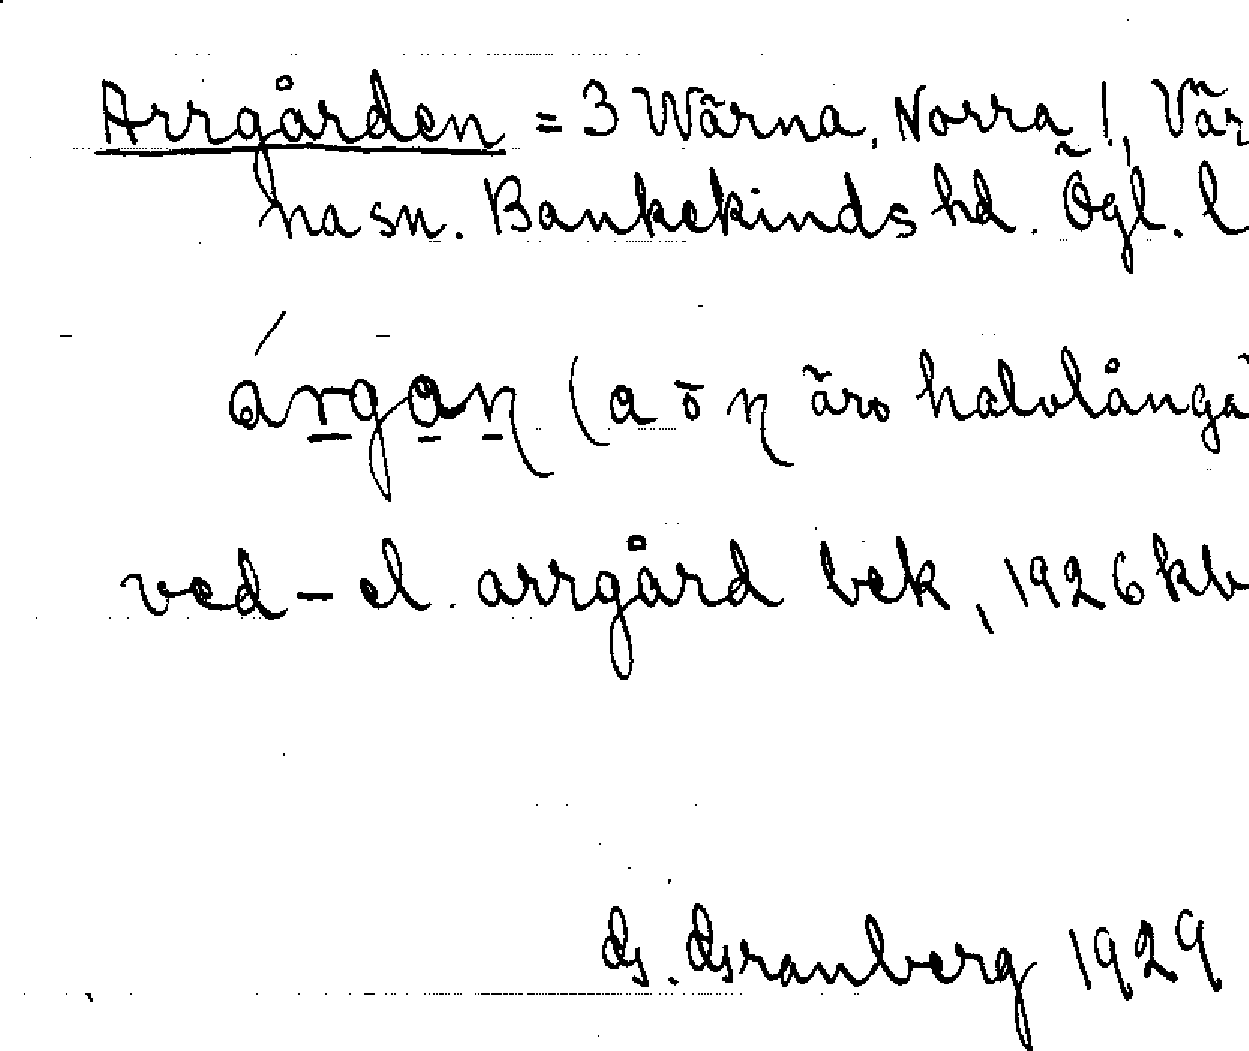 Arrgården = 3 Wärna, Norra!, Vär
na sn. Bankekinds hd. Ögl. l
árgan (a o n äro halvlånga
ved - el. arrgård bek, 1926 kb
G. Granberg 1929